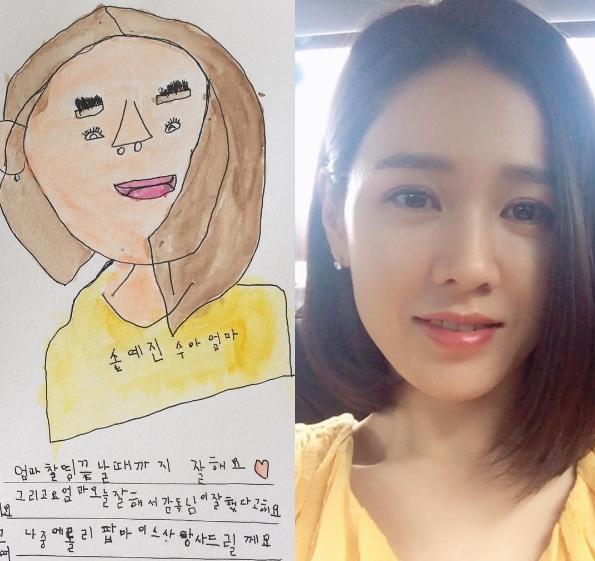 손예진 수아 엄마
엄마 촬영 끝날때까지 잘해요
그리고요 엄마 오늘 잘해서 감독님이 잘했다고해요
나중에 롤리팝 아이스 사탕 사드릴께요